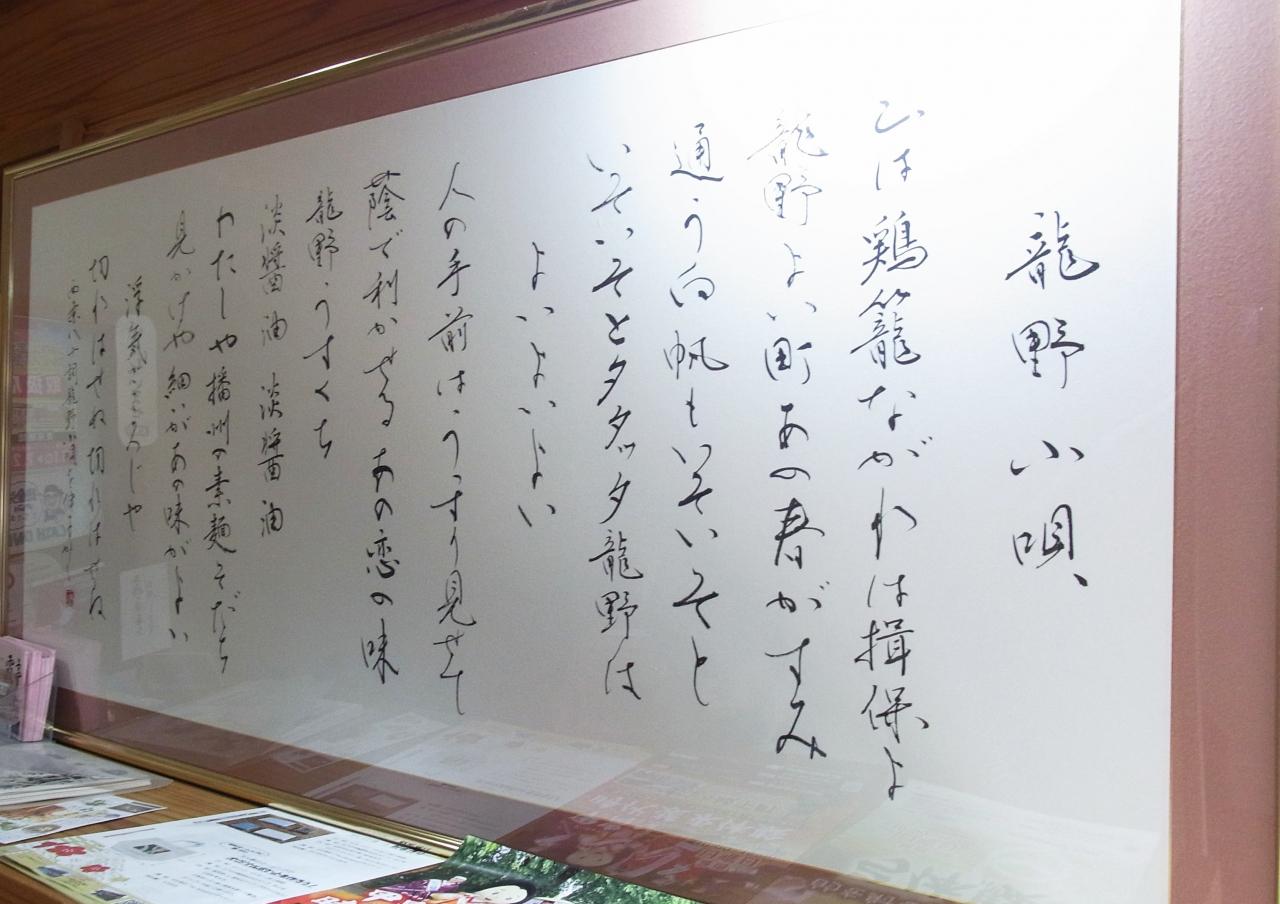 龍野小唄
山は鶏籠ながれは揖保よ
龍野よい町あの春がすみ
通う白帆もいそいそと
いそいそとタタッタ龍野は
よいよいよい
人の手前はうっすり見せて
蔭で利かせるあの恋の味
龍野うすくち
淡醤油 淡醤油
わたしや播州の素麺そだち
見かけや細いがあの味がよい
浮気
じや
切れはせぬ切れはせぬ
CASH